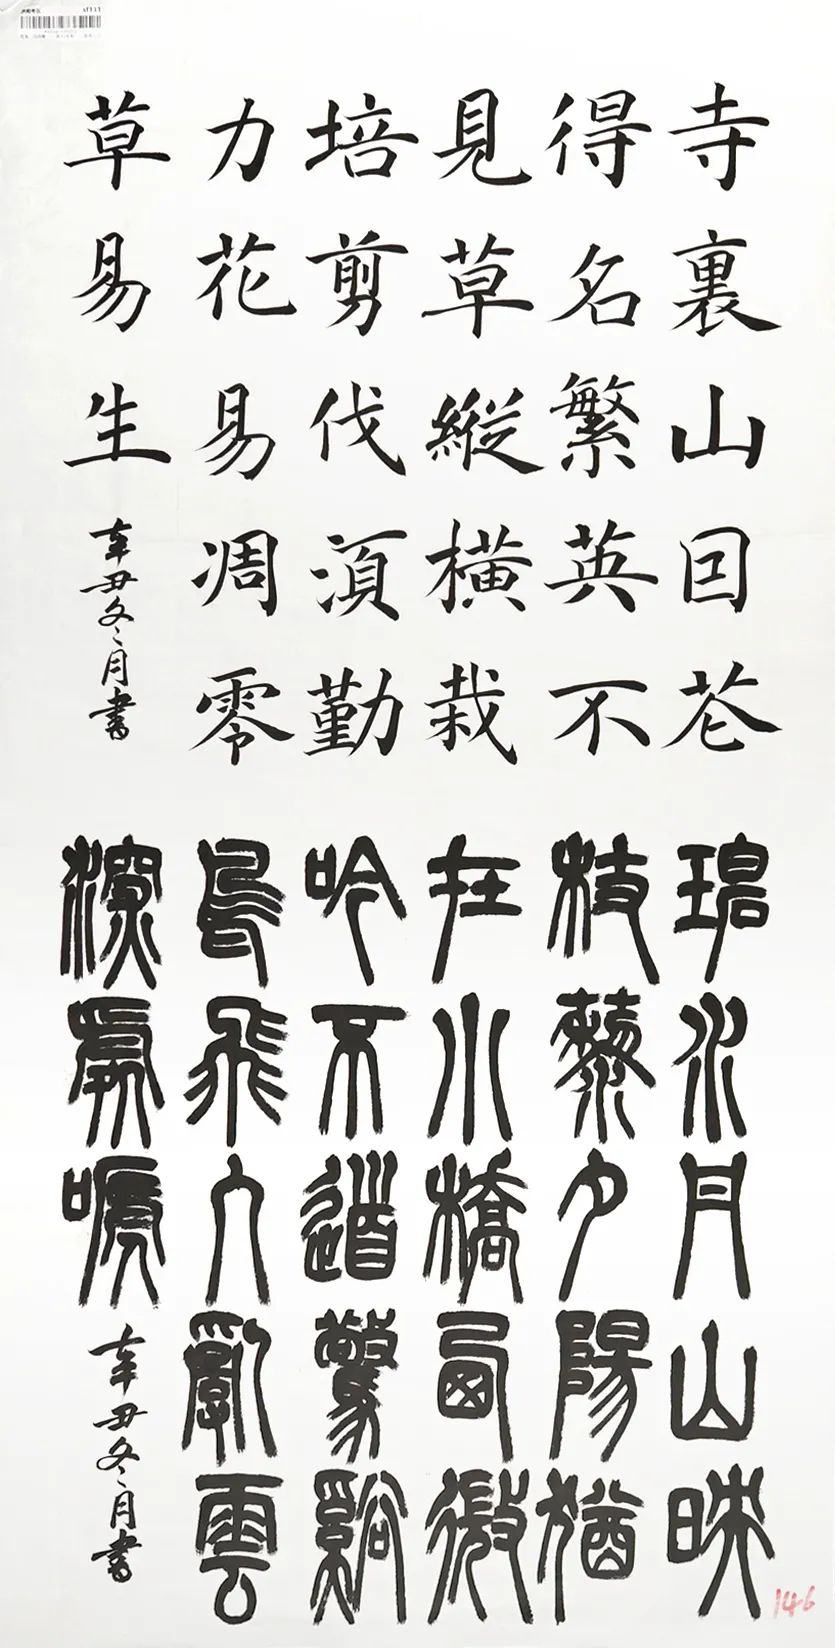 寺裏山囙花
得名繁英不
見草縱橫栽
培剪伐須勤
力花易凋零
草易生
辛丑冬月書
碧水丹山映
杖藜夕陽猶
在小橋西微
吟不道驚谿
鳥飛入亂雲
深處嗁
辛丑冬月書
146